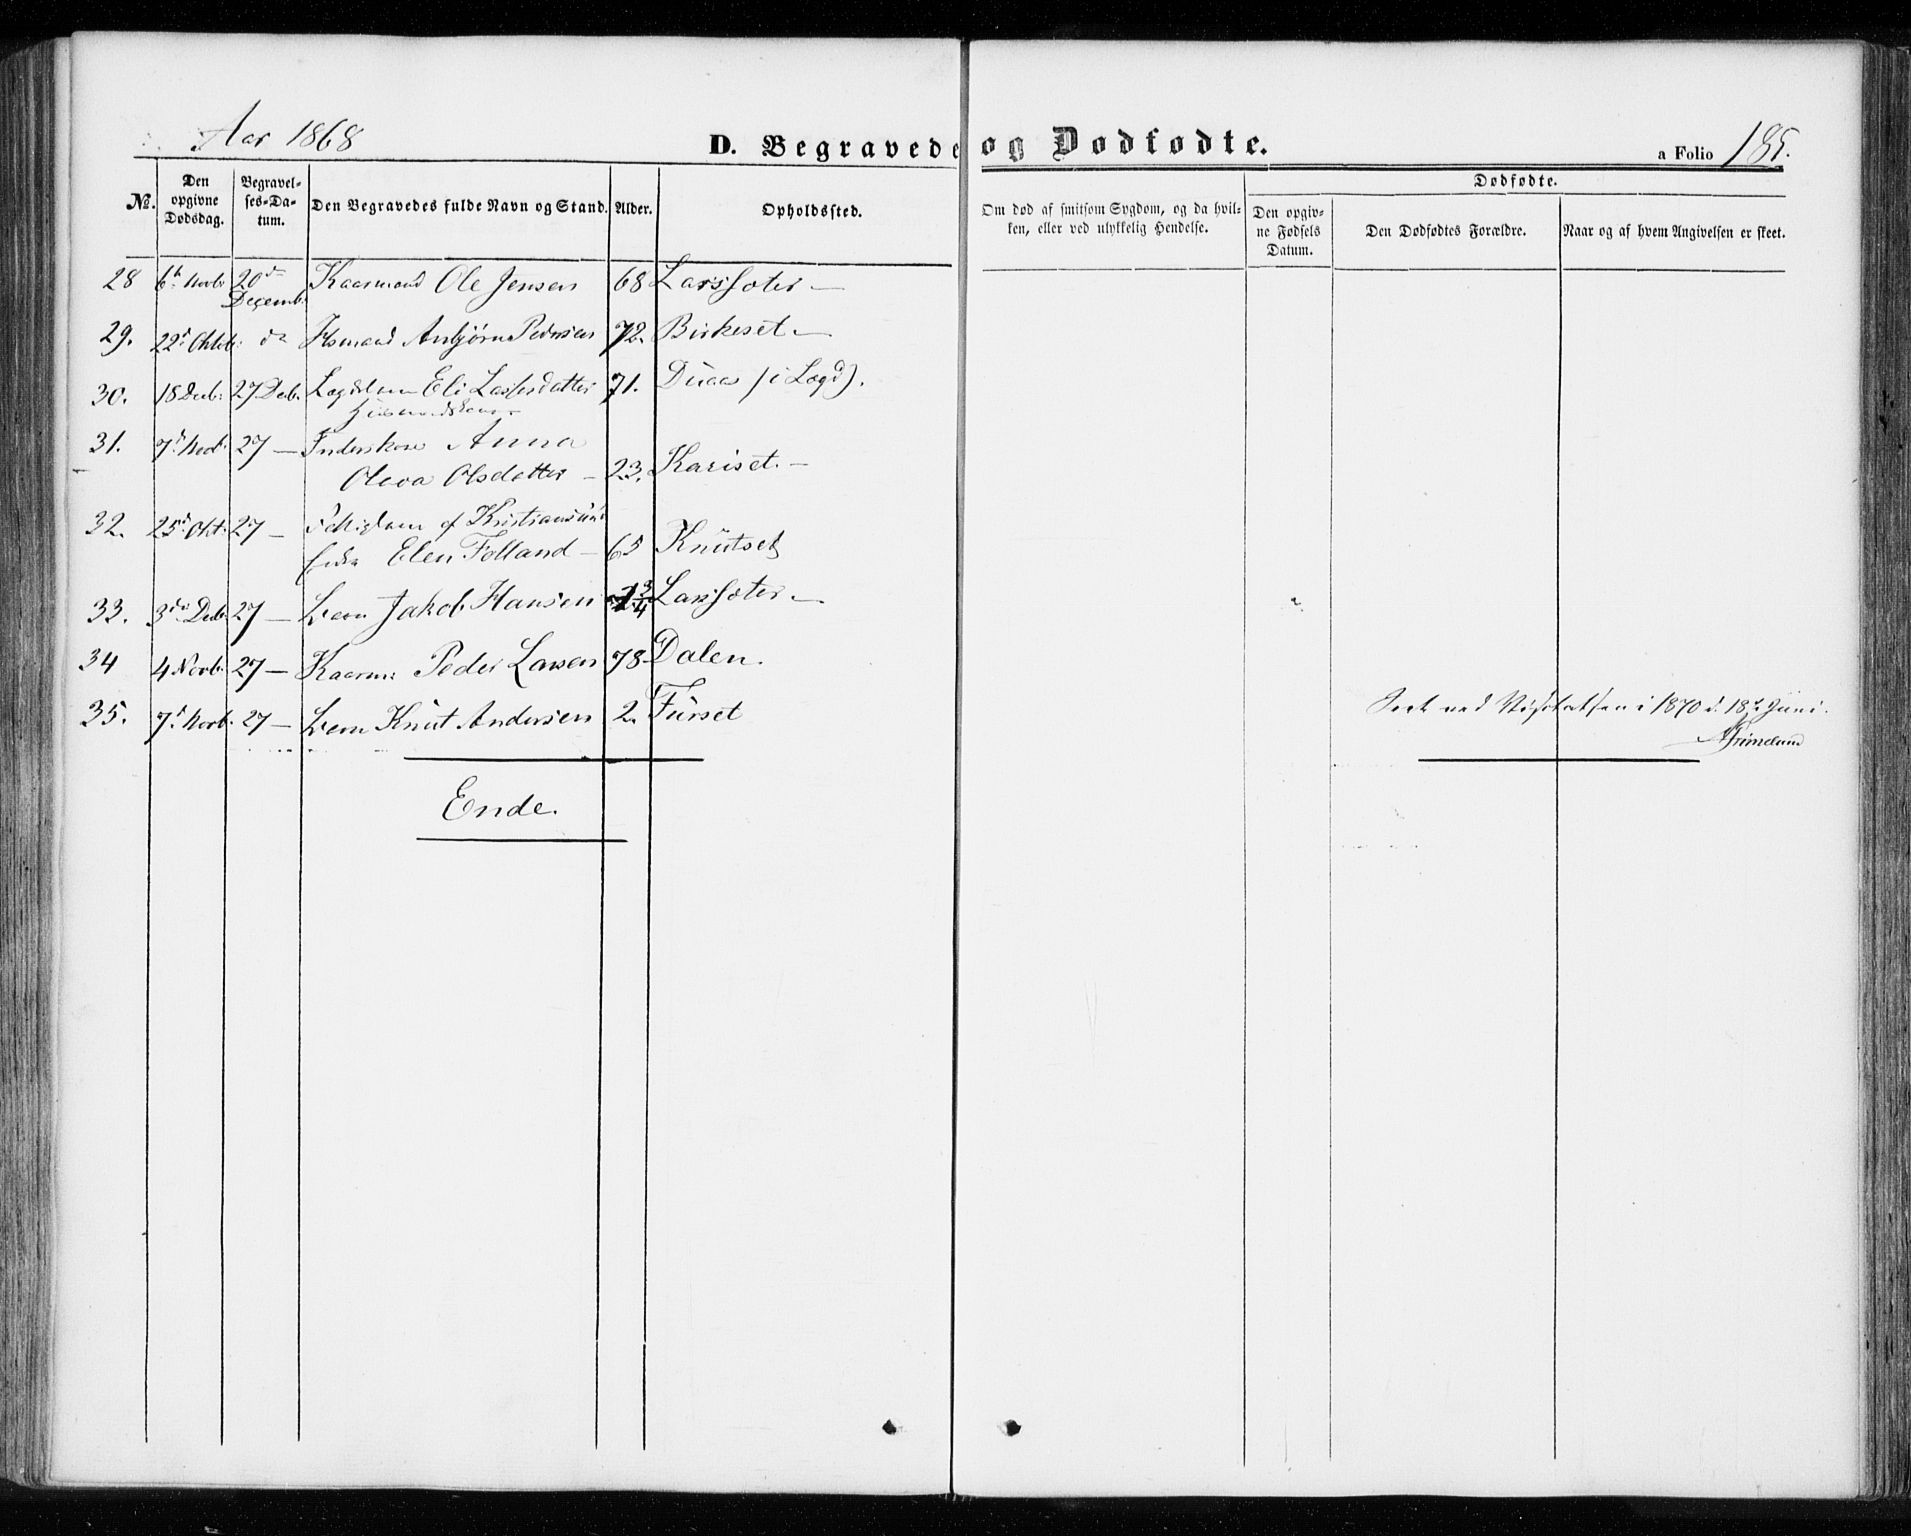 Aar 1868
D. Begravede og Dødfødte.
a Folio 185.
No.
Den opgivne Dødsdag.
Begravelses-Datum.
Den Begravedes fulde Navn og Stand.
Alder.
Opholdssted.
Om død af smitsom Sygdom, og da hvilken, eller ved ulykkelig Hendelse.
Dødfødte.
Den opgivne Fødsels Datum.
Den Dødfødtes Forældre.
Naar og af hvem Angivelsen er skeet.
28 6t Novb. 20de Decemb. Kaarmand Ole Jensen 68 Larssæter —
29. 22d Oktob. do Hsmand Anbjørn Pedersen 72. Birkeset —
30. 18 Decb. 27 Decb. Lægdslem Eli Larsdatter 71. Duaas (i Lægd).
31. 7d Novb. 27 — Inderskone Anna
Olava Olsdatter — 23. Kariset. —
32. 25d Okt. 27 — af Kristiansund
Elen Folland — 65 Knutset
33. 3de Decb. 27 — Barn Jakob Hansen 1 3/4 Larssæter —
34 4 Novb. 27 — Kaarm. Peder Larsen 78 Dalen.
35. 7d Novb. 27 — Barn Knut Andersen 2. Furset
Seet ved Visitatsen i 1870 d. 18de Juni.
AGrimelund
Ende.